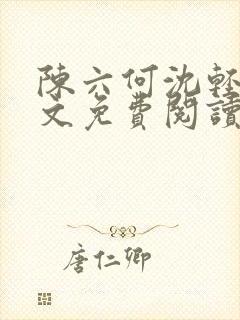 陳六何沈輕
文免費閱讀
唐仁卿